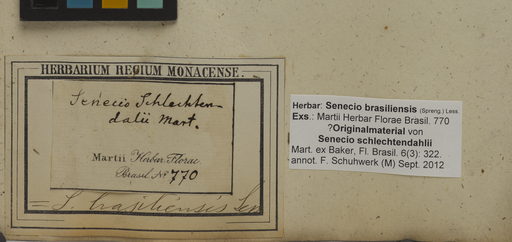 HERBARIUM REGIUM MONACENSE.
Senecio Schlechten-
dalii Mart.
Martii Herbar. Florae
Brasil. No 770
= S. brasiliensis Less
Herbar: Senecio brasiliensis (Spreng.) Less.
Exs.: Martii Herbar Florae Brasil. 770
?Originalmaterial von
Senecio schlechtendahlii
Mart. ex Baker, Fl. Brasil. 6(3): 322.
annot. F. Schuhwerk (M) Sept. 2012